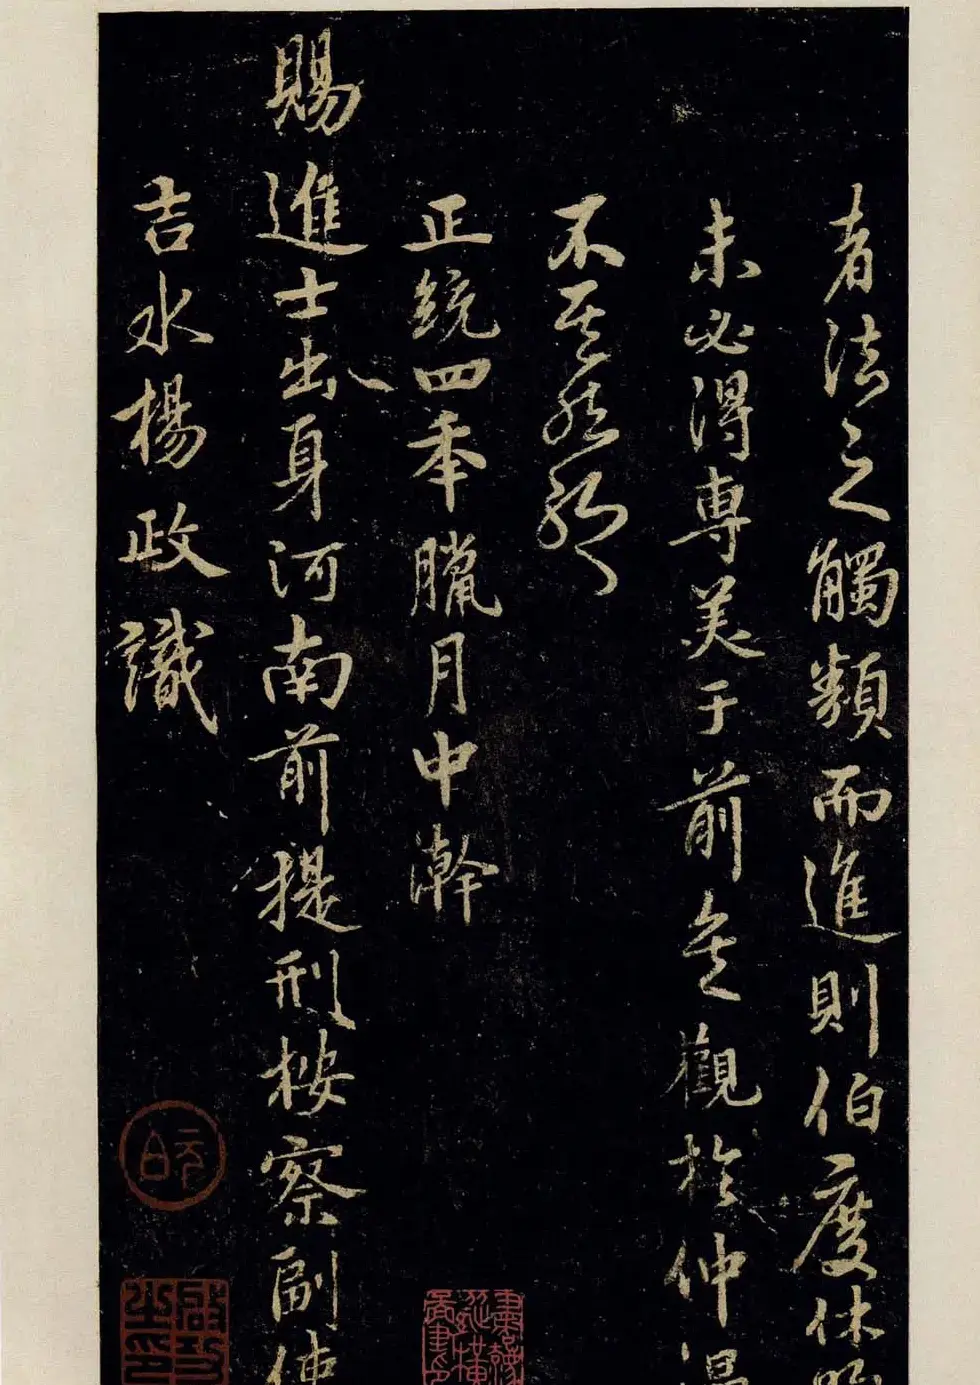 者法之觸類而進則伯度休明
未必得專美于前矣觀於仲温
不其然邪
正統四年臘月中澣
賜進士出身河南前提刑按察副使
吉水楊政識